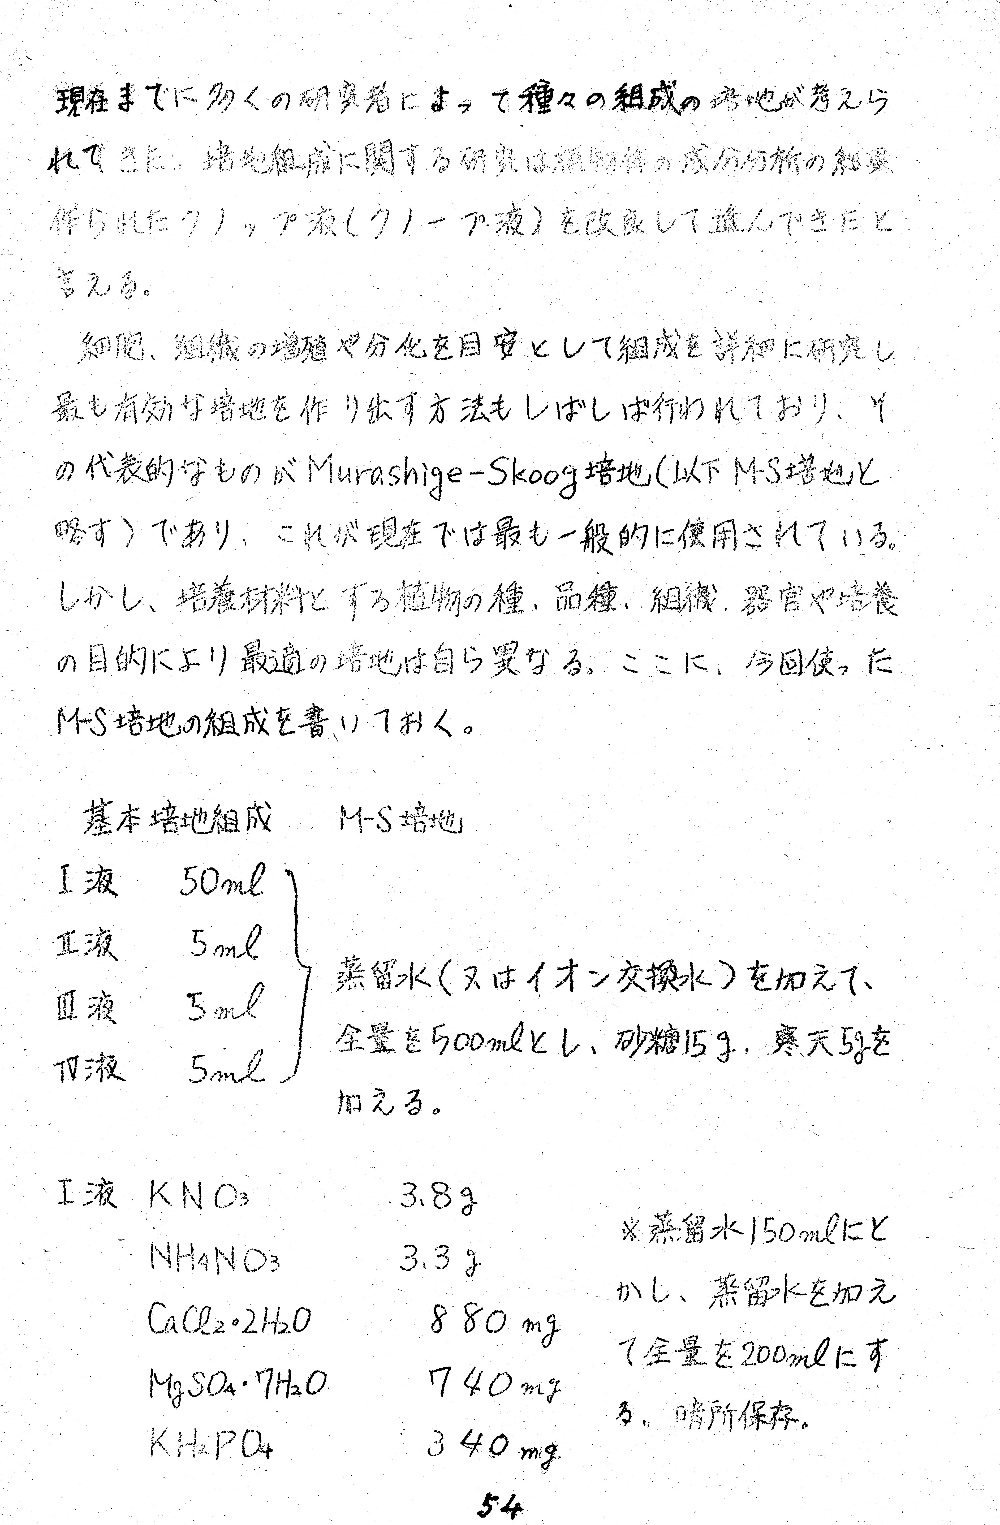 現在までに多くの研究者によって種々の組成の培地が考えら
れてきた。培地組成に関する研究は植物体の成分分析の結果
作られたクノップ液(クノープ液)を改良して進んできたと
言える。
細胞、組織の増殖や分化を目安として組成を詳細に研究し
最も有効な培地を作り出す方法もしばしば行われており、そ
の代表的なものがMurashige-Skoog培地(以下M-S培地と
略す)であり、これが現在では最も一般的に使用されている。
しかし、培養材料とする植物の種、品種、組織、器官や培養
の目的により最適の培地は自ら異なる。ここに、今回使った
M-S培地の組成を書いておく。
基本培地組成 M-S培地
Ⅰ液 50ml
Ⅱ液 5ml
Ⅲ液 5ml
Ⅳ液 5ml
蒸留水(又はイオン交換水)を加えて、
全量を500mlとし、砂糖15g、寒天5gを
加える。
Ⅰ液 KNO₃ 3.8g
NH₄NO₃ 3.3g
CaCl₂・2H₂O 880mg
MgSO₄・7H₂O 740mg
KH₂PO₄ 340mg
※蒸留水150mlにと
かし、蒸留水を加え
て全量を200mlにす
る。暗所保存。
54